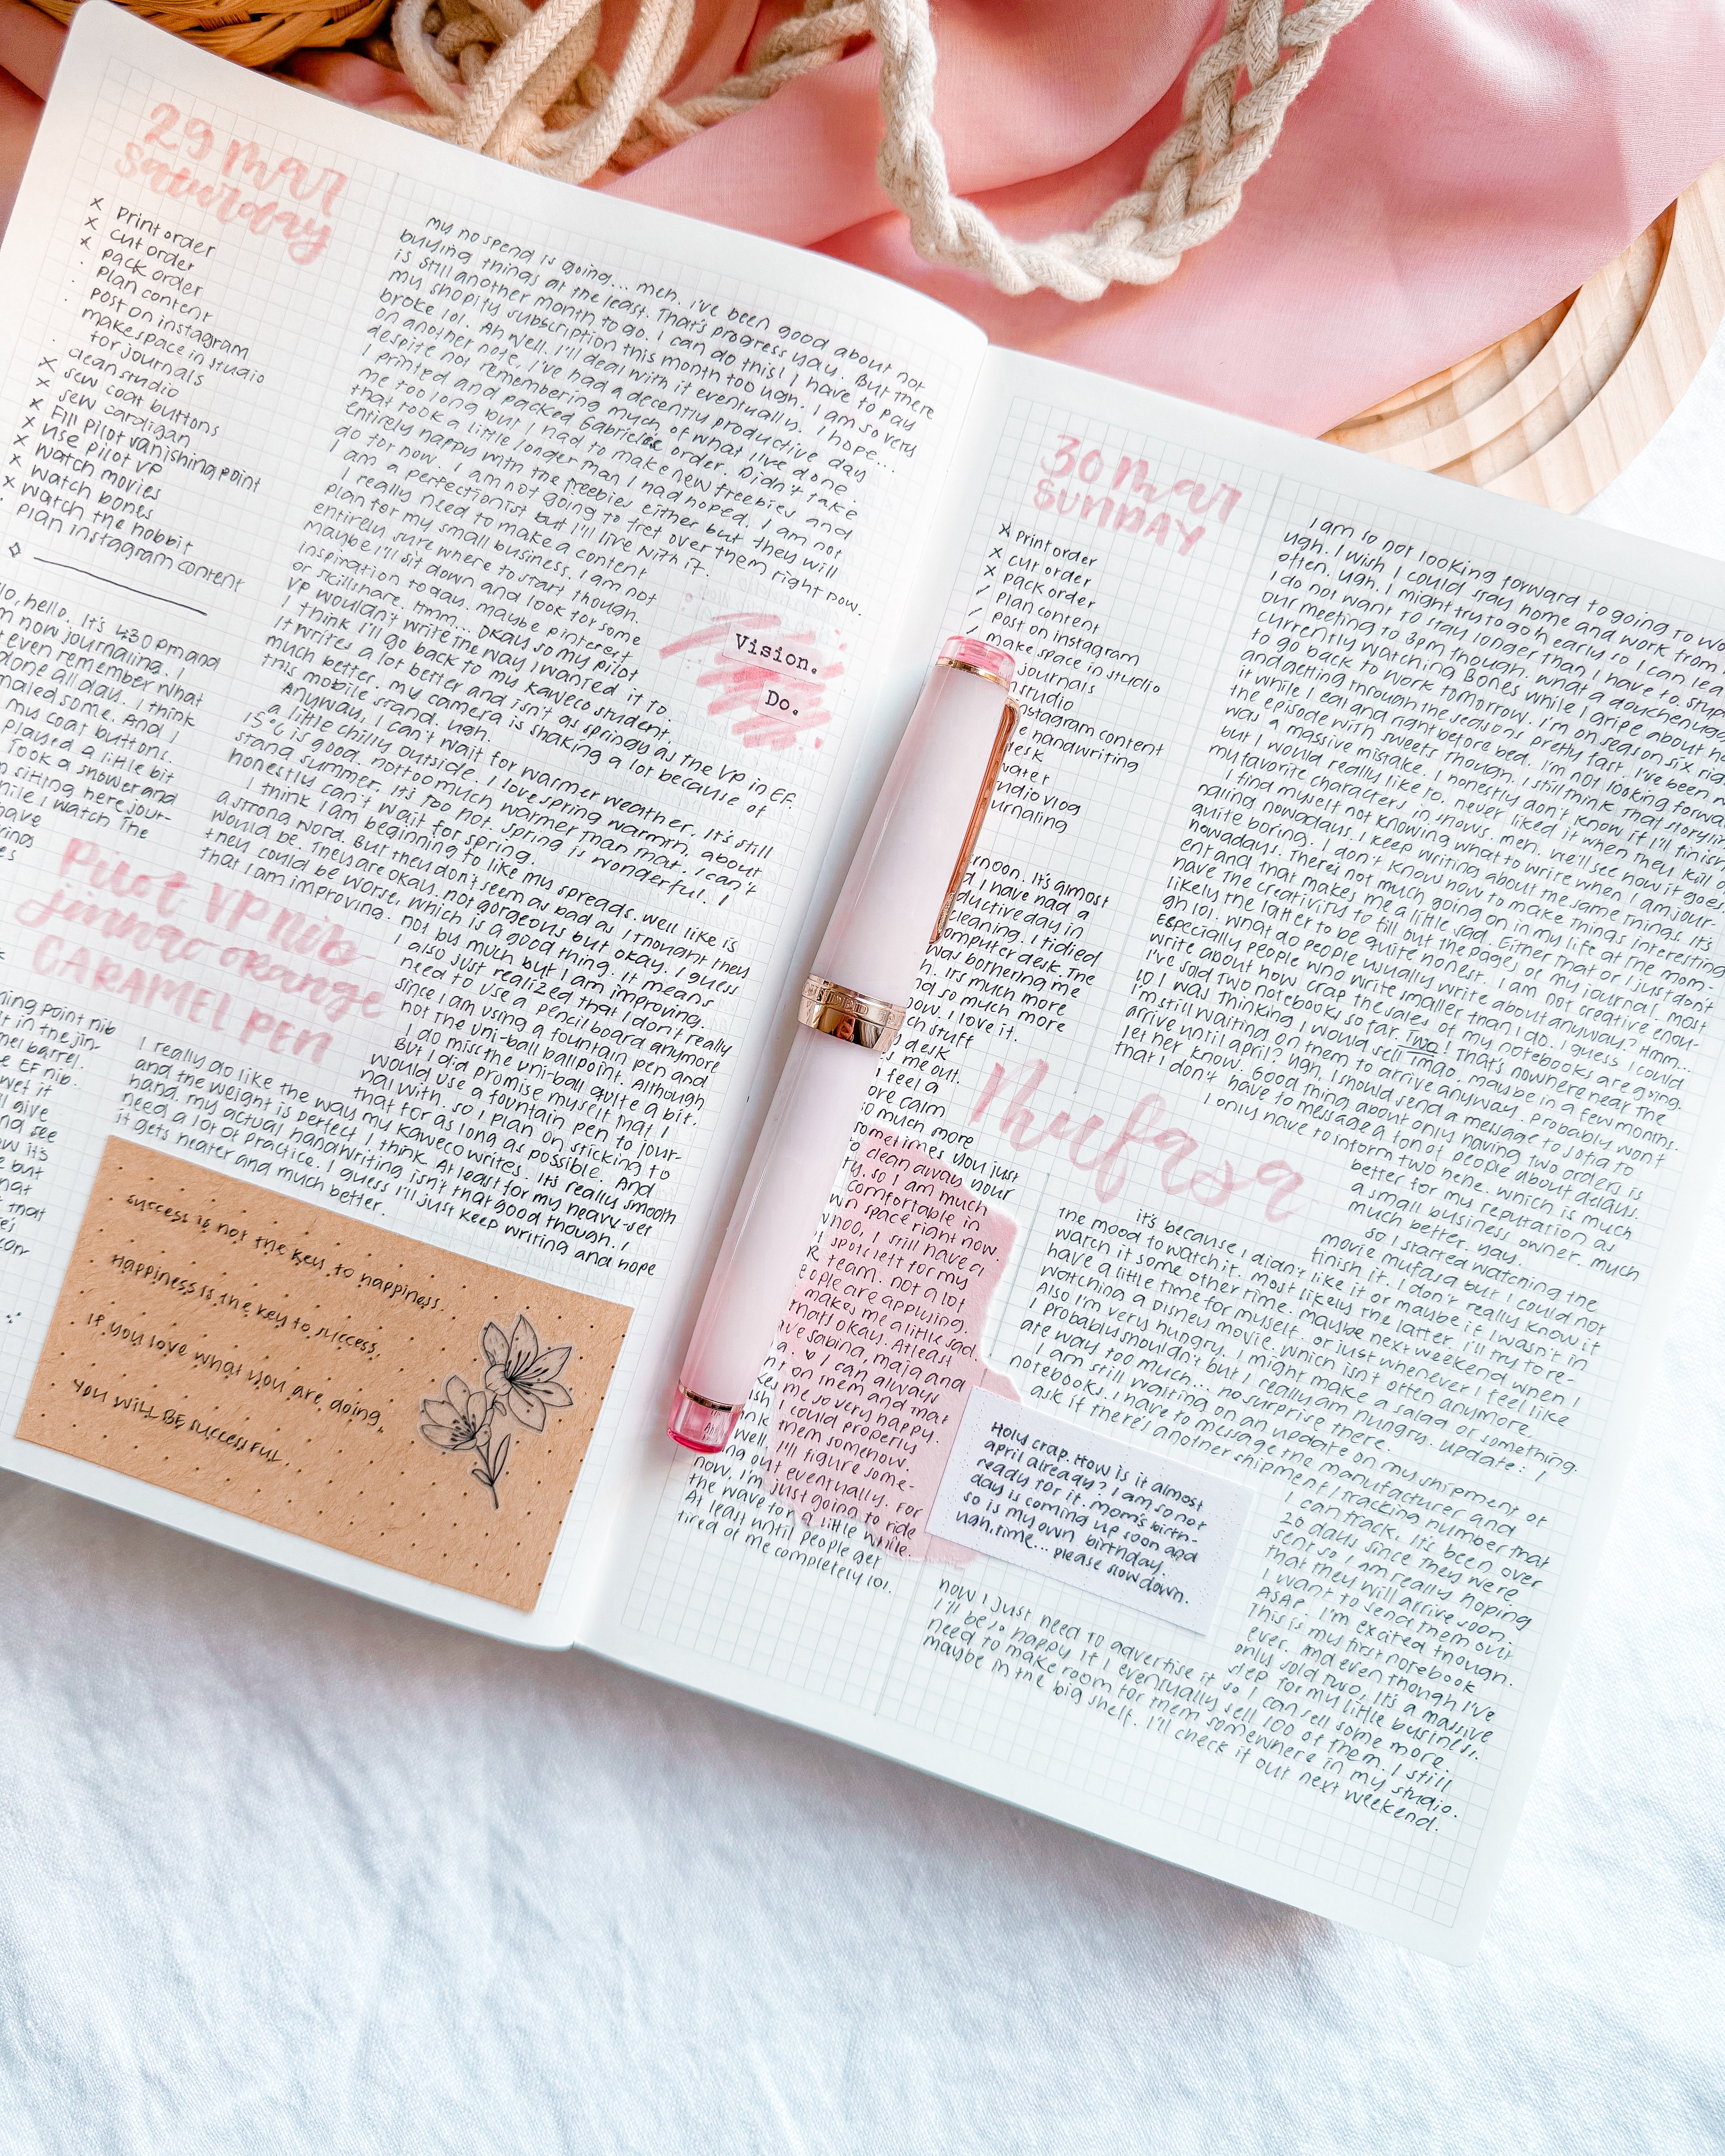 29 Mar
Saturday
x Print order
x cut order
x pack order
· plan content
· post on instagram
make space in studio
for journals
· clean studio
x sew coat buttons
x sew cardigan
x Fill Pilot vanishing point
x use Pilot VP
x watch movies
x watch bones
x watch the hobbit
plan instagram content
hello. It's 4:30 pm and
now journaling. I
even remember what
done all day. I think
some. And I
my coat buttons.
played a little bit
Took a shower and
sitting here jour-
while I watch The
my no spend is going... meh. I've been good about not
buying things at the least. That's progress yay. But there
is still another month to go. I can do this! I have to pay
my shopify subscription this month too ugh. I am so very
broke lol. Ah well. I'll deal with it eventually. I hope...
on another note, I've had a decently productive day
despite not remembering much of what I've done.
I printed and packed Gabriele's order. Didn't take
me too long but I had to make new freebies and
that took a little longer than I had hoped. I am not
entirely happy with the freebies either but they will
do for now. I am not going to fret over them right now.
I am a perfectionist but I'll live with it.
I really need to make a content
plan for my small business. I am not
entirely sure where to start though.
maybe I'll sit down and look for some
inspiration today. maybe pinterest
or skillshare. Hmm... Okay so my pilot
VP wouldn't write the way I wanted it to.
I think I'll go back to my kaweco student.
It writes a lot better and isn't as springy as the VP in EF.
much better. my camera is shaking a lot because of
this mobile stand. ugh.
Anyway, I can't wait for warmer weather. It's still
a little chilly outside. I love spring warmth, about
15°C is good. not too much warmer than that. I can't
stand summer. It's too hot. Spring is wonderful. I
honestly can't wait for spring.
I think I am beginning to like my spreads. well like is
a strong word. But they don't seem as bad as I thought they
would be. They are okay. not gorgeous but okay. I guess
they could be worse, which is a good thing. It means
that I am improving. not by much but I am improving.
I also just realized that I don't really
need to use a pencil board anymore
since I am using a fountain pen and
not the uni-ball ballpoint. Although
I do miss the uni-ball quite a bit.
But I did promise myself that I
would use a fountain pen to jour-
nal with. so I plan on sticking to
that for as long as possible. And
Vision.
Do.
Pilot VP Nib
jinhao orange
CARAMEL PEN
point nib
in the jin-
barrel.
EF nib.
wet it
give
and see
how it's
but
that
I really do like the way my kaweco writes. It's really smooth
and the weight is perfect I think. At least for my heavy-set
hand. my actual handwriting isn't that good though. I
need a lot of practice. I guess I'll just keep writing and hope
it gets neater and much better.
success is not the key to happiness.
Happiness is the key to success.
If you love what you are doing,
you WILL BE successful.
30 Mar
SUNDAY
x Print order
x cut order
x pack order
/ Plan content
/ Post on instagram
/ make space in studio
journals
studio
instagram content
handwriting
desk
water
studio vlog
journaling
It's almost
I have had a
productive day in
cleaning. I tidied
computer desk. The
was bothering me
It's much more
and so much more
now. I love it.
stuff
desk
me out.
feel a
more calm
so much more
sometimes you just
clean away your
so I am much
comfortable in
own space right now.
I still have a
spots left for my
team. not a lot
people are applying.
makes me a little sad.
that's okay. At least
have sabina, maja and
♥ I can always
on them and that
makes me so very happy.
I could properly
thank them somehow.
well. I'll figure some-
thing out eventually. For
now, I'm just going to ride
the wave for a little while.
At least until people get
tired of me completely lol.
I am so not looking forward to going to
ugh. I wish I could stay home and work from
often. ugh. I might try to go in early so I can
I do not want to stay longer than I have to.
our meeting to 3pm though. what a
currently watching Bones while I gripe about
to go back to work tomorrow. I'm on season six
and getting through the seasons pretty fast. I've been
it while I eat and right before bed. I'm not looking
the episode with sweets though. I still think that
was a massive mistake. I honestly don't know if I'll finish
but I would really like to. never liked it when they kill
my favorite characters in shows. meh. we'll see how it goes.
I find myself not knowing what to write when I am jour-
naling nowadays. I keep writing about the same things. It's
quite boring. I don't know how to make things interesting
nowadays. There's not much going on in my life at the mom-
ent and that makes me a little sad. Either that or I just don't
have the creativity to fill out the pages of my journal. most
likely the latter to be quite honest. I am not creative enou-
gh lol. what do people usually write about anyway? Hmm...
Especially people who write smaller than I do. I guess I could
write about how crap the sales of my notebooks are going.
I've sold two notebooks so far. Two! That's nowhere near the
10 I was thinking I would sell lmao. maybe in a few months.
I'm still waiting on them to arrive anyway. Probably won't
arrive until april? ugh, I should send a message to sofia to
let her know. Good thing about only having two orders is
that I don't have to message a ton of people about delays.
I only have to inform two hehe. which is much
better for my reputation as
a small business owner. much
much better. yay.
Mufasa
So I started watching the
movie mufasa but I could not
finish it. I don't really know if
it's because I didn't like it or maybe if I wasn't in
the mood to watch it. most likely the latter. I'll try to re-
watch it some other time. maybe next weekend when I
have a little time for myself. or just whenever I feel like
watching a Disney movie. which isn't often anymore.
Also I'm very hungry. I might make a salad or something.
I probably shouldn't but I really am hungry. update: I
are way too much... no surprise there.
I am still waiting on an update on my shipment of
notebooks. I have to message the manufacturer and
ask if there's another shipment / tracking number that
I can track. It's been over
20 days since they were
sent so I am really hoping
that they will arrive soon.
I want to send them out
ASAP. I'm excited though.
This is my first notebook
ever. And even though I've
only sold two, it's a massive
step for my little business.
Holy crap. How is it almost
april already? I am so not
ready for it. mom's birth-
day is coming up soon and
so is my own birthday.
ugh, time... please slow down.
now I just need to advertise it so I can sell some more.
I'll be so happy if I eventually sell 100 of them. I still
need to make room for them somewhere in my studio.
maybe in the big shelf. I'll check it out next weekend.